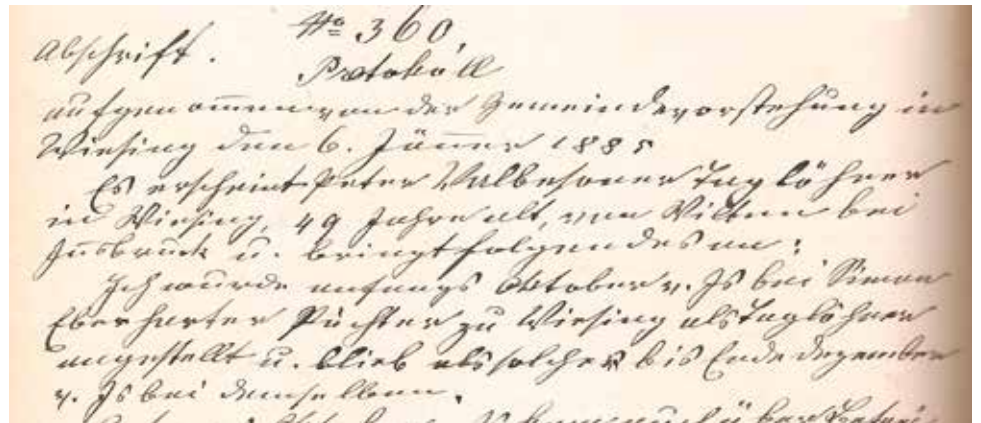 No 360,
Abschrift.
Protokoll
aufgenommen von der Gemeindevorstehung in
Wiesing den 6. Jänner 1885
Es erscheint Peter Taglöhner
in Wiesing, 49 Jahre alt, von Wilten bei
Innsbruck u. bringt folgendes an:
Ich wurde anfangs Oktober v. Js bei Simon
Eberharter Pächter zu Wiesing als Taglöhner
angestellt u. blieb als solcher bis Ende Dezember
v. Js bei demselben.